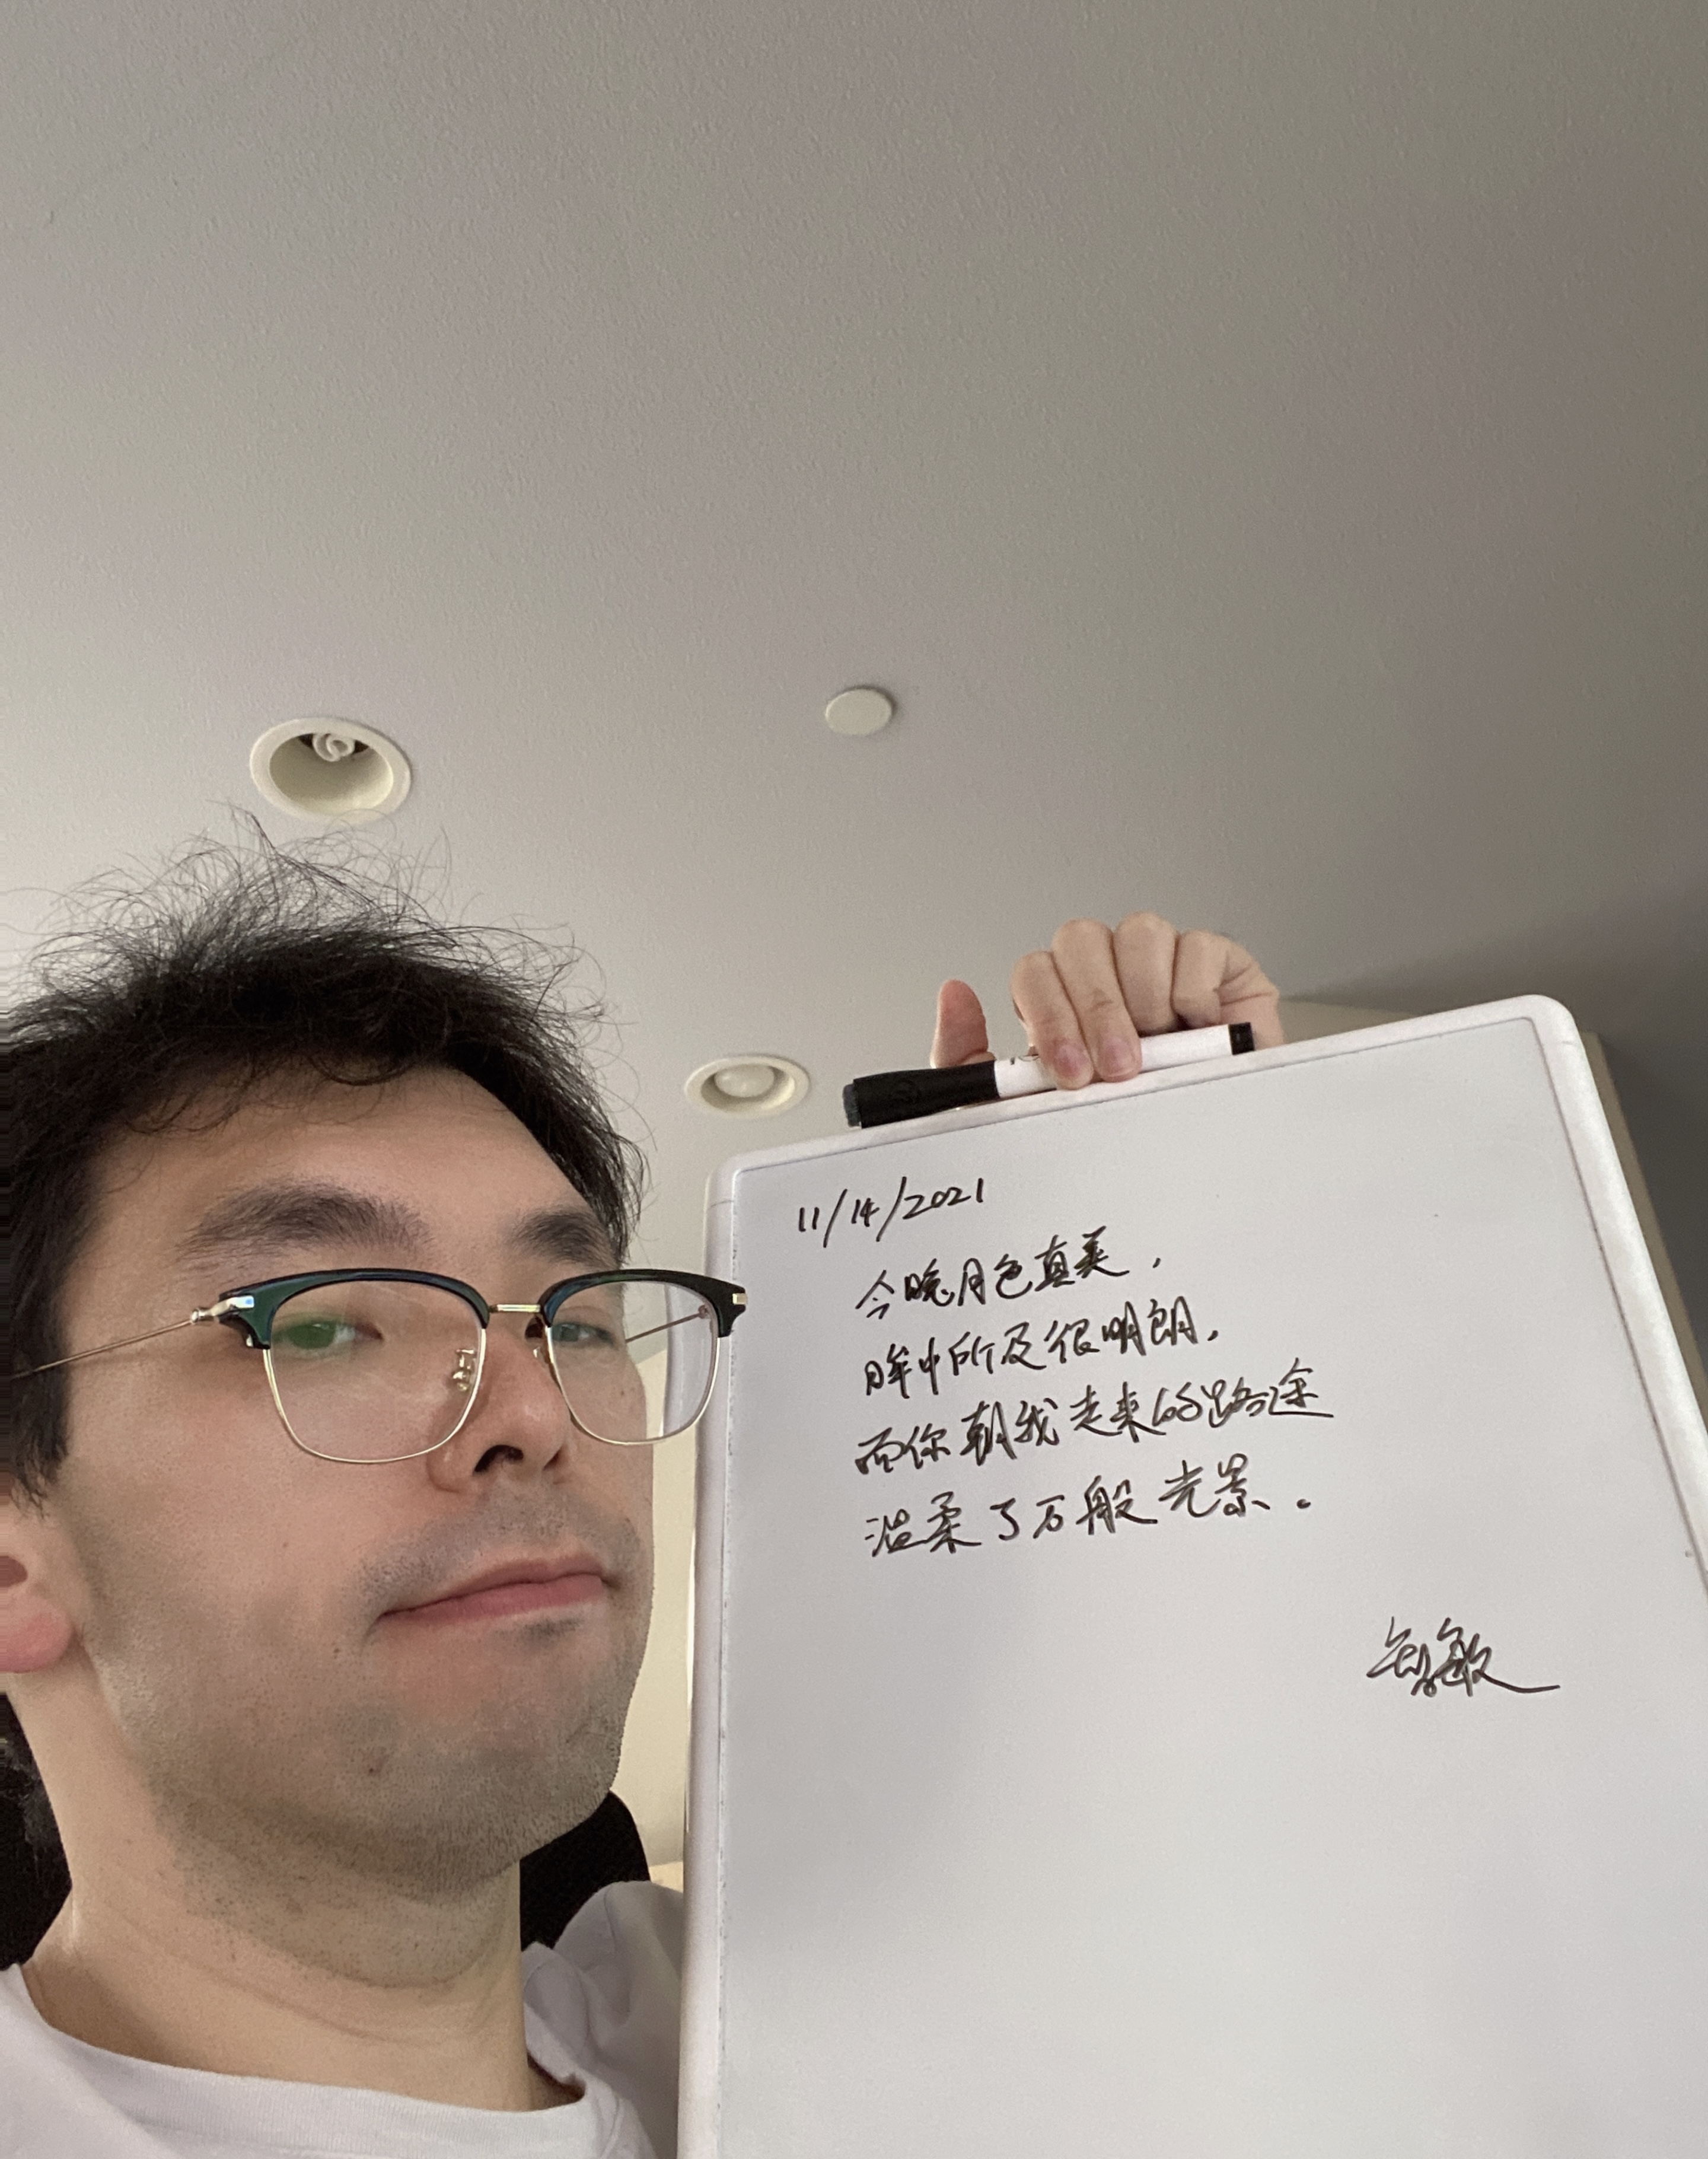 11/14/2021
今晚月色真美，
眸中所及很明朗，
而你朝我走来的路途
温柔了万般光景。